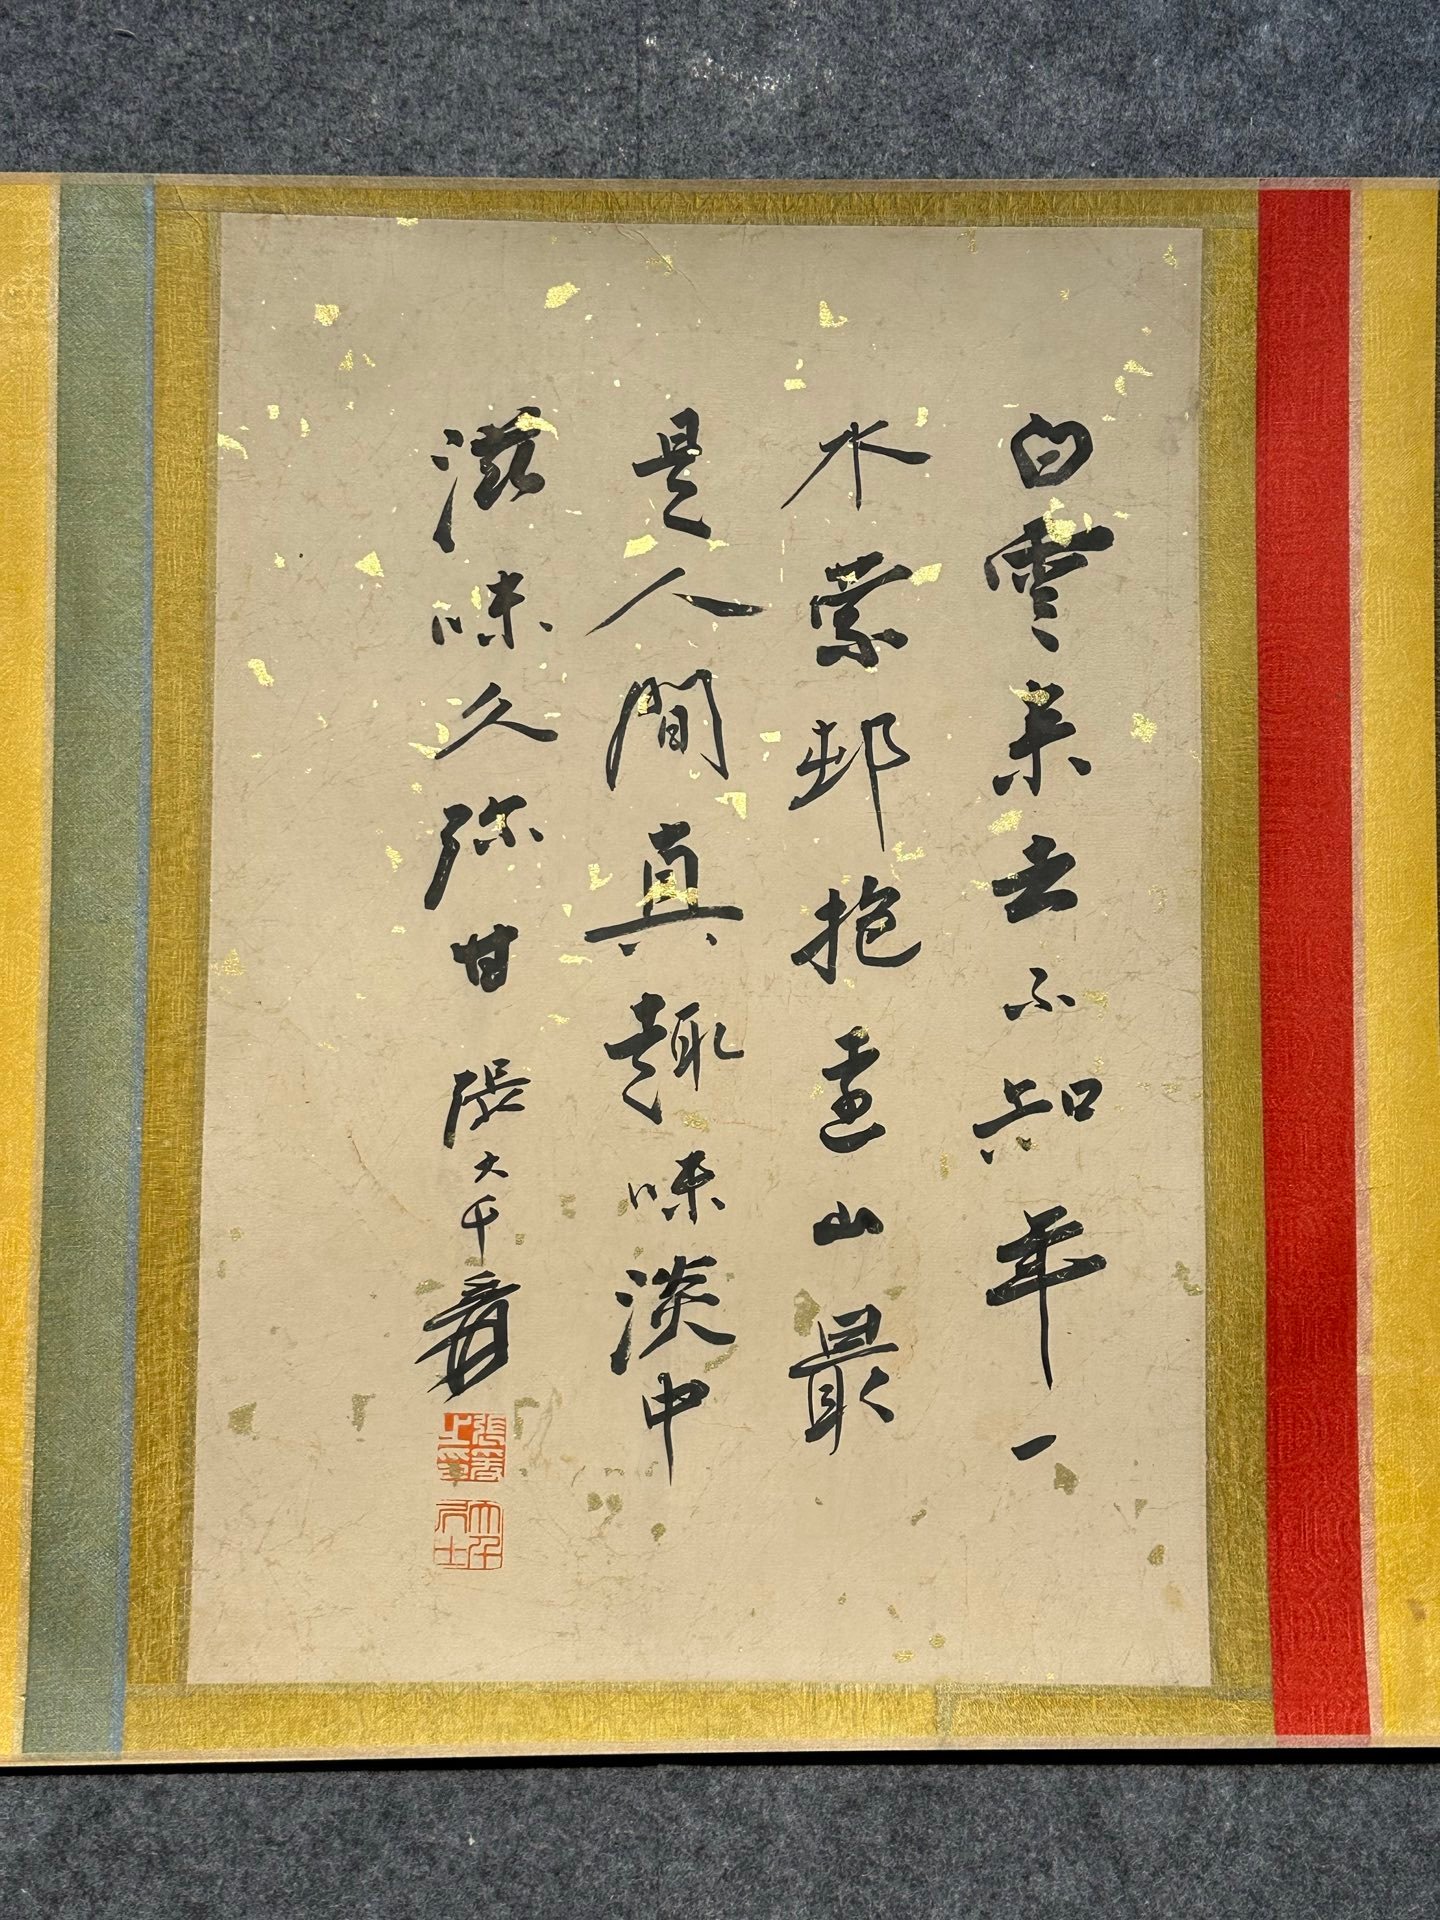 白雲來去不知年一
水縈邨抱遠山最
是人間真趣味淡中
滋味久弥甘 張大千爰
張爰之印
大千居士